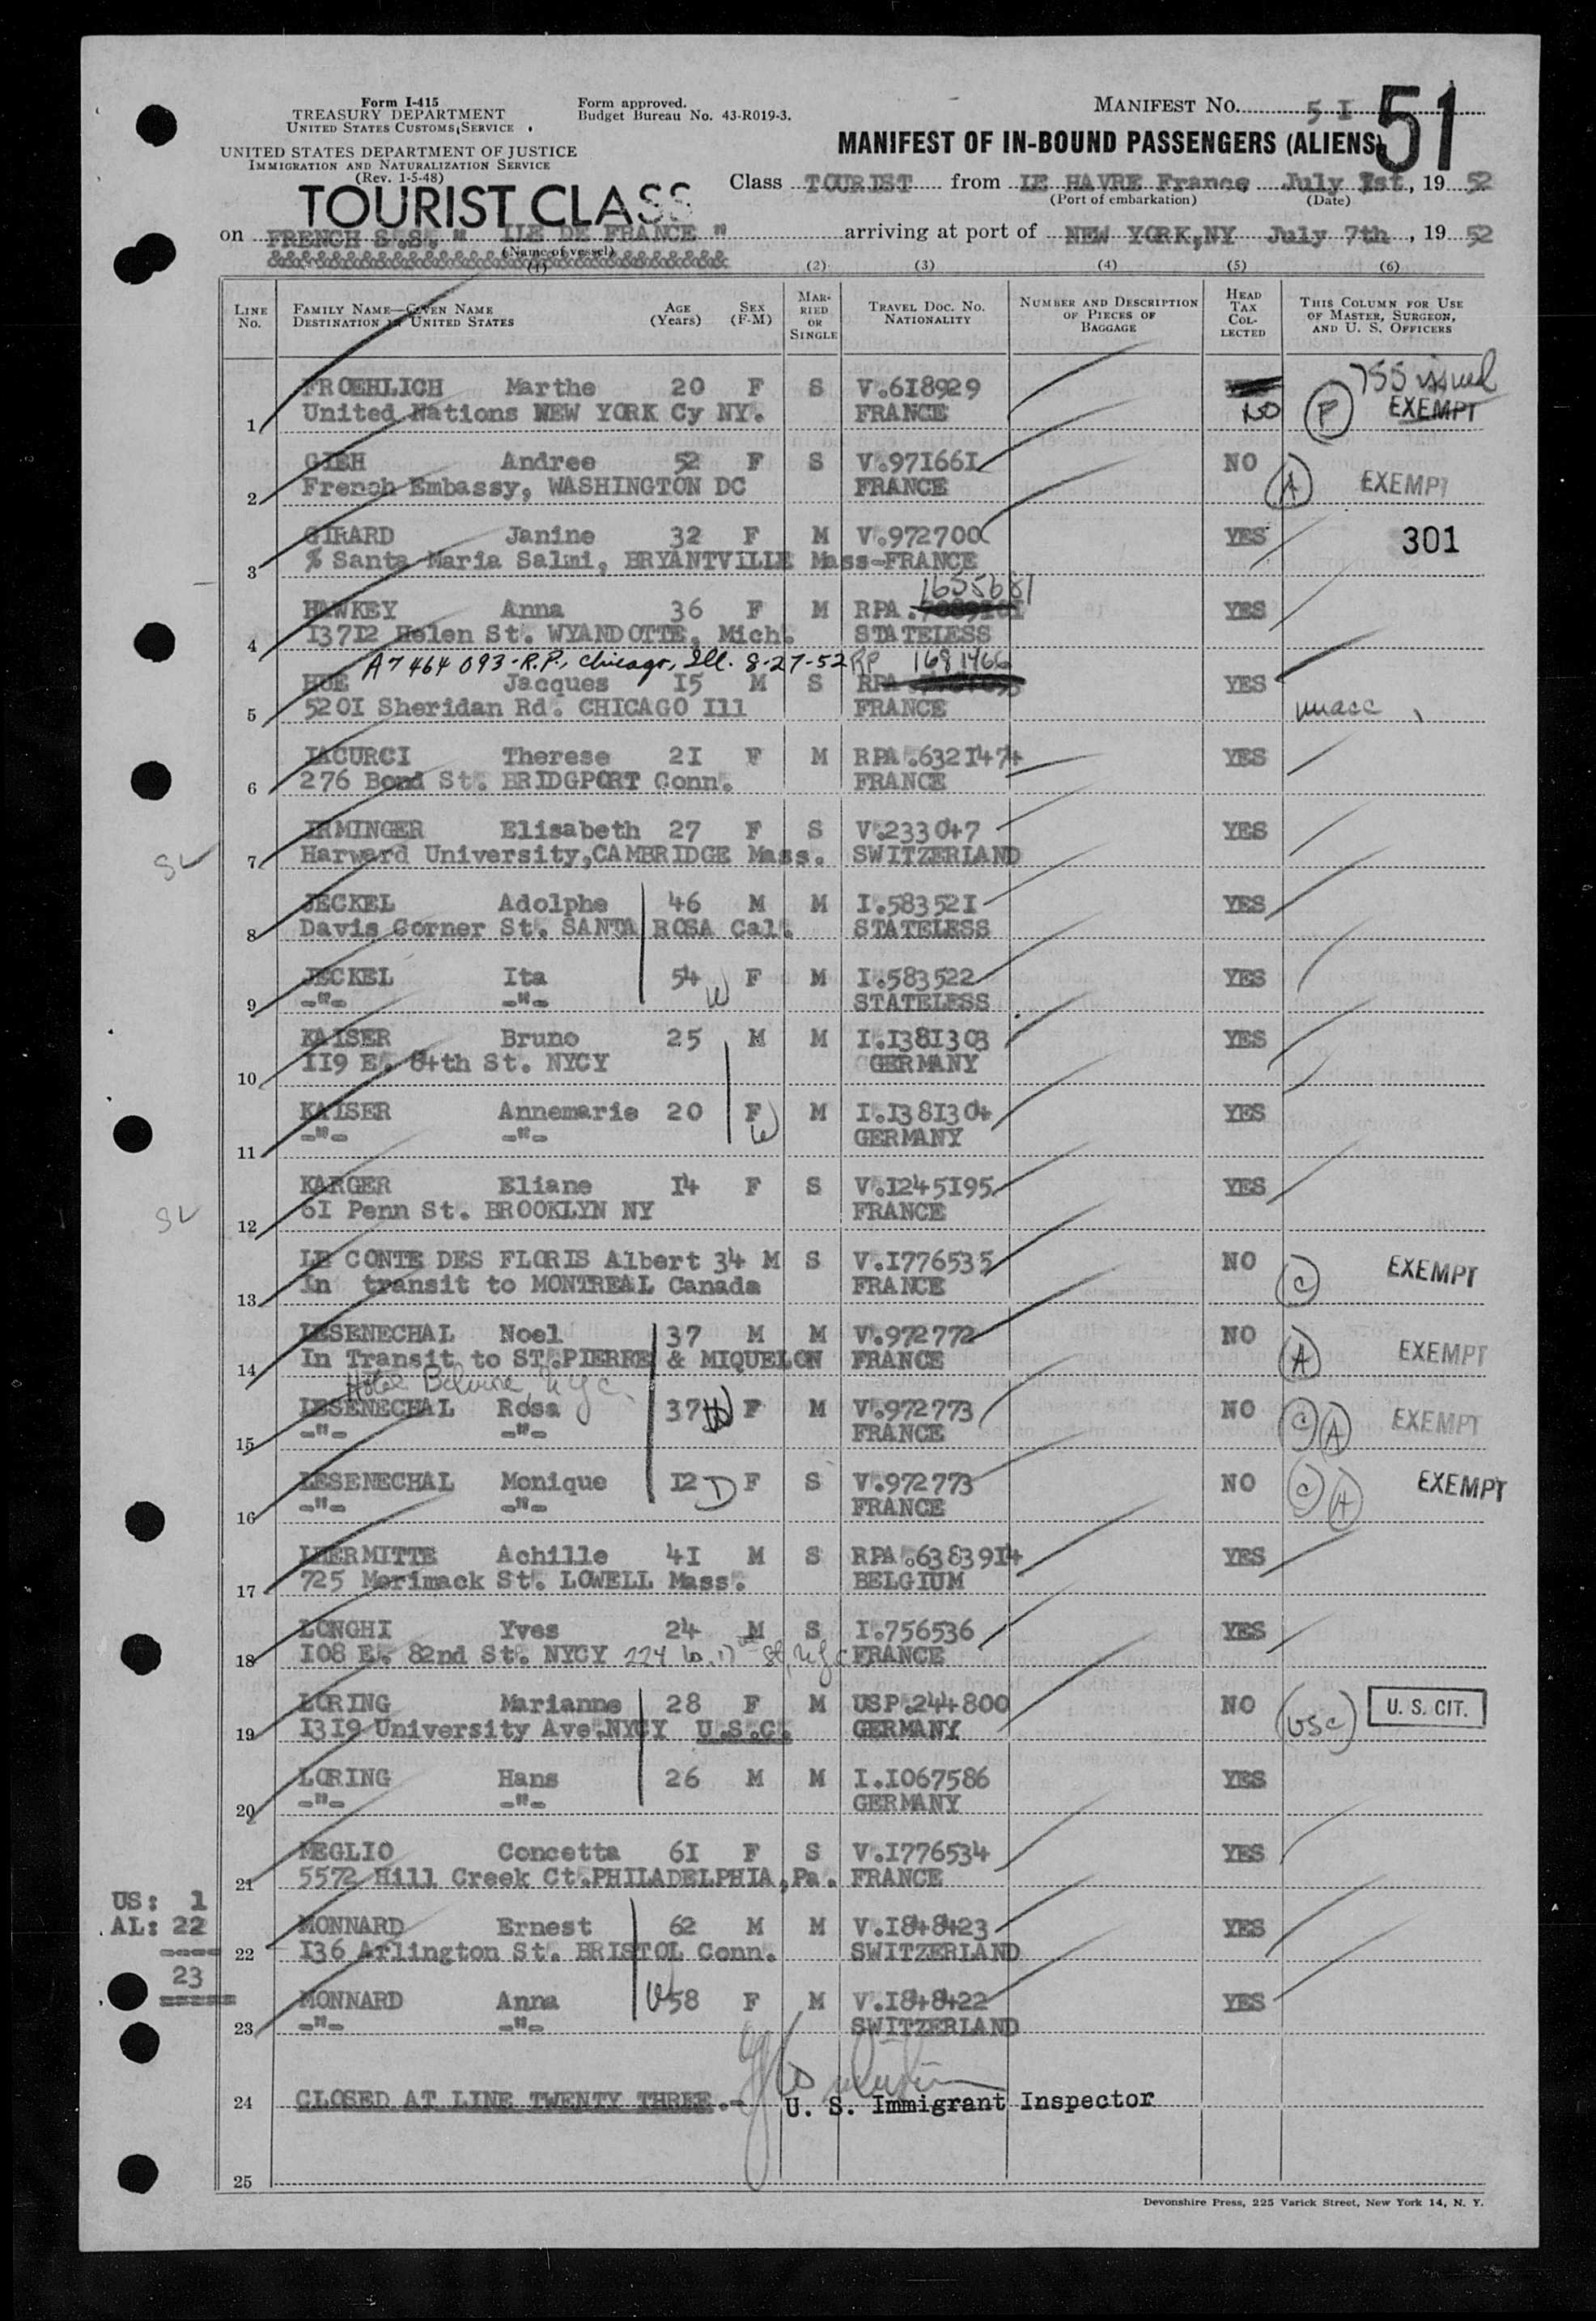 Form I-415
TREASURY DEPARTMENT
UNITED STATES CUSTOMS SERVICE
UNITED STATES DEPARTMENT OF JUSTICE
IMMIGRATION AND NATURALIZATION SERVICE
(Rev. 1-5-48)
Form approved.
Budget Bureau No. 43-R019-3.
MANIFEST NO. 5I 51
MANIFEST OF IN-BOUND PASSENGERS (ALIENS)
TOURIST CLASS
Class TOURIST from LE HAVRE France July Ist, 19 52
(Port of embarkation) (Date)
on FRENCH S.S. " ILE DE FRANCE " arriving at port of NEW YORK,NY July 7th, 19 52
(Name of vessel)
(1) (2) (3) (4) (5) (6)
LINE No. FAMILY NAME—GIVEN NAME DESTINATION IN UNITED STATES AGE (Years) SEX (F-M) MARRIED OR SINGLE TRAVEL DOC. NO. NATIONALITY NUMBER AND DESCRIPTION OF PIECES OF BAGGAGE HEAD TAX COLLECTED THIS COLUMN FOR USE OF MASTER, SURGEON, AND U. S. OFFICERS
755 issued
FROEHLICH Marthe 20 F S V.618929
1 United Nations NEW YORK Cy NY. FRANCE NO F EXEMPT
GIEH Andree 52 F S V.971661 NO
2 French Embassy, WASHINGTON DC FRANCE A EXEMPT
GIRARD Janine 32 F M V.972700 YES 301
3 % Santa Maria Salmi, BRYANTVILLE Mass-FRANCE
1655681
HAWKEY Anna 36 F M RPA. YES
4 13712 Helen St. WYANDOTTE, Mich. STATELESS
A7 464 093-R.P., Chicago, Ill. 8-27-52 RP 1681466
HUE Jacques 15 M S RPA YES
5 5201 Sheridan Rd. CHICAGO Ill FRANCE unacc
IACURCI Therese 21 F M RPA.6321474 YES
6 276 Bond St. BRIDGPORT Conn. FRANCE
IRMINGER Elisabeth 27 F S V.233047 YES
SL 7 Harward University,CAMBRIDGE Mass. SWITZERLAND
JECKEL Adolphe 46 M M I.583521 YES
8 Davis Corner St. SANTA ROSA Cal. STATELESS
JECKEL Ita 54 W F M I.583522 YES
9 -"- -"- STATELESS
KAISER Bruno 25 M M I.1381303 YES
10 119 E. 84th St. NYCY GERMANY
KAISER Annemarie 20 F W M I.1381304 YES
11 -"- -"- GERMANY
KARGER Eliane 14 F S V.1245195 YES
SL 12 61 Penn St. BROOKLYN NY FRANCE
LE CONTE DES FLORIS Albert 34 M S V.1776535 NO EXEMPT
13 In transit to MONTREAL Canada FRANCE C
LESENECHAL Noel 37 M M V.972772 NO
14 In Transit to ST.PIERRE & MIQUELON FRANCE A EXEMPT
Hotel
LESENECHAL Rosa 37 W F M V.972773 NO C A EXEMPT
15 -"- -"- FRANCE
LESENECHAL Monique 12 D F S V.972773 NO C A EXEMPT
16 -"- -"- FRANCE
LHERMITTE Achille 41 M S RPA.6383914 YES
17 725 Merimack St. LOWELL Mass. BELGIUM
LONGHI Yves 24 M S I.756536 YES
18 108 E. 82nd St. NYCY FRANCE
LORING Marianne 28 F M USP.244800 NO USC U. S. CIT.
19 1319 University Ave.NYCY U.S.C. GERMANY
LORING Hans 26 M M I.1067586 YES
20 -"- -"- GERMANY
MEGLIO Concetta 61 F S V.1776534 YES
21 5572 Hill Creek Ct.PHILADELPHIA,Pa. FRANCE
US: 1
AL: 22
23
MONNARD Ernest 62 M M V.1848423 YES
22 136 Arlington St. BRISTOL Conn. SWITZERLAND
MONNARD Anna W 58 F M V.1848422 YES
23 -"- -"- SWITZERLAND
24 CLOSED AT LINE TWENTY THREE.- U. S. Immigrant Inspector
25
Devonshire Press, 225 Varick Street, New York 14, N. Y.